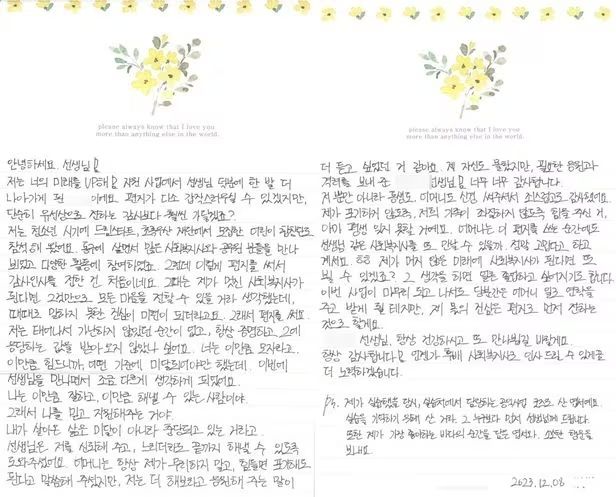 please always know that I love you
more than anything else in the world.
안녕하세요. 선생님
저는 너의 미래를 UP해 지원 사업에서 선생님 덕분에 한 발 더
나아가게 된 이에요. 편지가 다소 갑작스러우실 수 있겠지만,
단순히 유선상으로 전하는 감사보다 훨씬 기쁘겠죠?
저는 청소년 시기에 드림스타트, 초록우산 재단에서 모집한 미팅이 참
참석해 왔어요. 동구에 살면서 많은 사회복지사와 공무원 분들을 만나
뵈었고 다양한 활동에 참여하였죠. 그런데 이렇게 편지를 써서
감사인사를 전한 건 처음이네요. 그때는 제가 멋진 사회복지사가
된다면 그것만으로 모든 마음을 전할 수 있을 거라 생각했는데,
때때로 말하지 못한 진심이 미련이 되더라고요. 그래서 편지를 써요.
저는 태어나서 가난하지 않았던 순간이 없고, 항상 증명하고 그에
응답하는 값을 받아오지 않았나 싶어요. 너는 이만큼 모자라고,
이만큼 힘드니까, 어떤 기준에 미달되어야만 했는데. 이번에
선생님을 만나면서 조금 다르게 생각하게 되었어요.
나는 이만큼 잘하고, 이만큼 해낼 수 있는 사람이야.
그래서 나를 믿고 지원해주는 거야.
내가 살아온 삶은 미달이 아니라 중단되고 있는 거라고.
선생님은 저를 신뢰해 주고, 느리더라도 끝까지 해낼 수 있도록
도와주셨어요. 어머니는 항상 제가 무리하지 말고, 힘들면 포기해도
된다고 말씀해 주셨지만, 저는 더 해보라고 응원해 주는 말이
please always know that I love you
more than anything else in the world.
더 듣고 싶었던 거 같아요. 제 자신도 몰랐지만, 필요한 응원과
격려를 보내 준 선생님 너무 너무 감사합니다.
저 뿐만 아니라 동생도, 어머니도 신경 써주셔서 소스럽고도 감사했어요.
제가 포기하지 않도록, 저희 가족이 좌절하지 않도록 힘을 주신 거,
아마 평생 잊지 못할 거예요. 어머니는 이 편지를 쓰는 순간에도
선생님 같은 사회복지사를 또 만날 수 있을까 심각 고민다고 하고
계셔요. ㅎㅎ 제가 머지 않은 미래에 사회복지사가 된다면 또
뵐 수 있겠죠? 그 생각을 하면 얼른 졸업하고 싶어지기도 합니다.
이번 사업이 마무리 되고 나서도 당분간은 어머니 일로 연락을
주고 받게 될 테지만, 제 몫의 진심은 편지로 먼저 전하는
것으로 할게요.
선생님, 항상 건강하시고 또 만나뵙길 바랄게요.
항상 감사합니다 언젠가 후배 사회복지사로 인사 드릴 수 있게끔
더 노력하겠습니다.
P.S. 제가 실습했을 당시, 실습처에서 담당하는 공익사업 굿즈로 산 엽서예요.
실습을 기억하기 위해 산 거라, 그 누구보다 먼저 선생님께 드립니다.
또한 제가 가장 좋아하는 바다의 순간을 담은 엽서라. 소박한 행운을
보내요.
2023.12.08